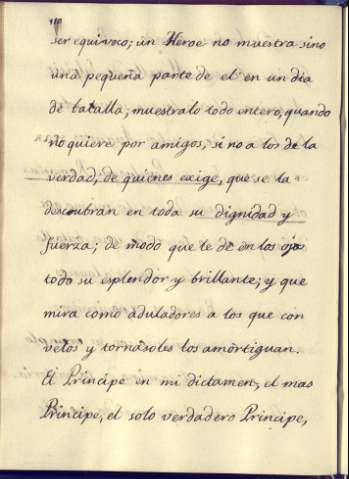 110
ser equivoco; un Heroe no muestra sino
una pequeña parte de el en un dia
de batalla; muestralo todo entero, quando
no quiere por amigos, si no a los de la
verdad; de quienes exige, que se la
descubran en toda su dignidad y
fuerza; de modo que le dè en los ojos
todo su esplendor y brillante; y que
mira como aduladores a los que con
velos y tornasoles los amòrtiguan.
El Principe en mi dictamen, el mas
Principe, el solo verdadero Principe,